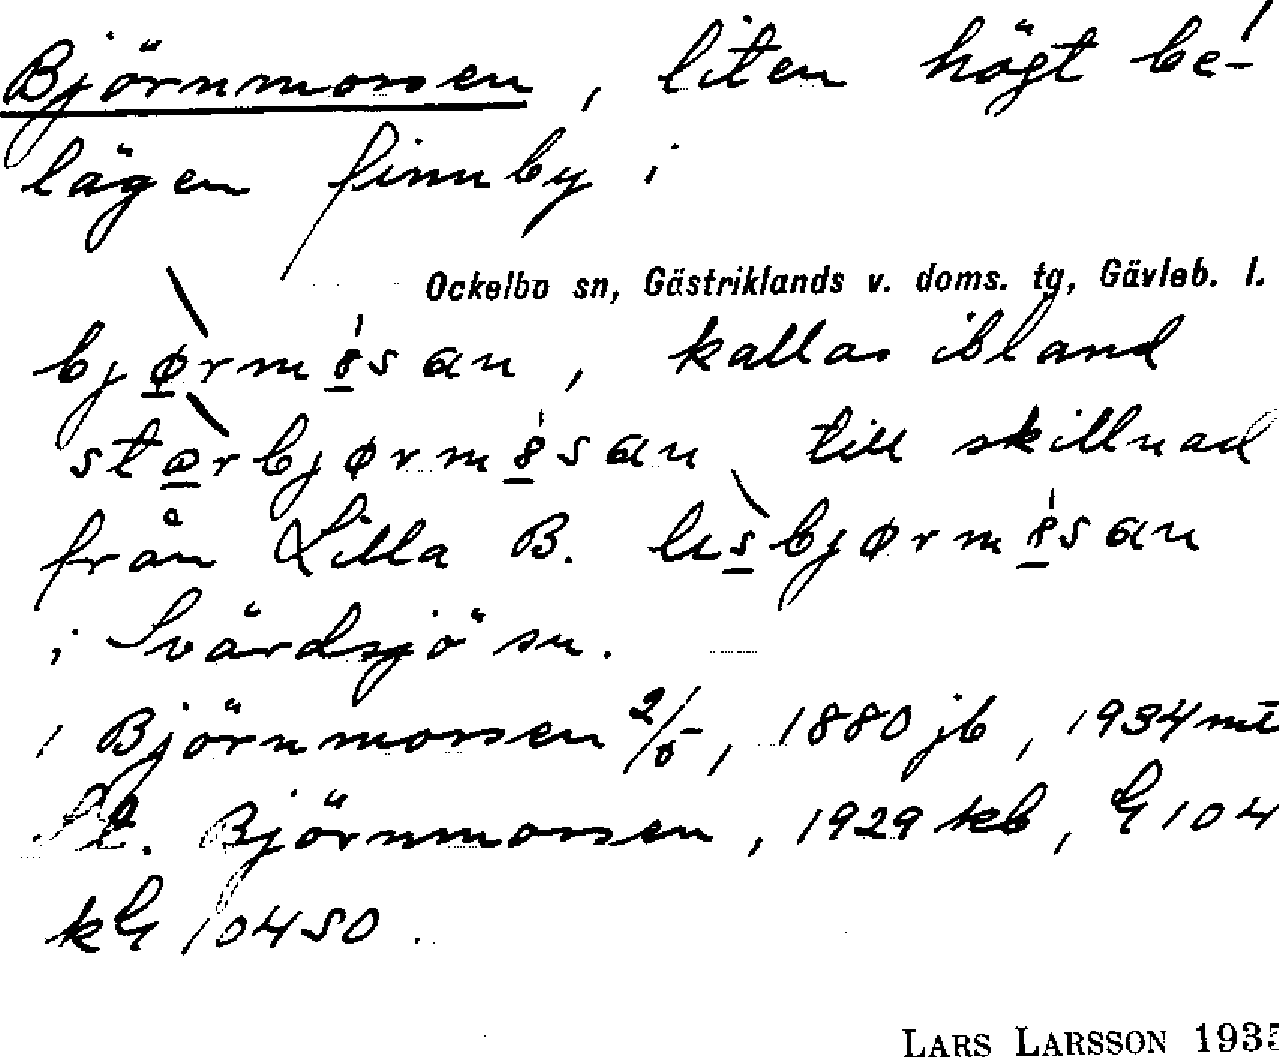 Björnmossen, liten högt be-
lägen finnby i
Ockelbo sn, Gästriklands v. doms. tg, Gävleb. l.
bjørmösan, kallas ibland
størbjørmösan till skillnad
från Lilla B. lisbjørmösan
i Svärdsjö sn.
1 Björnmossen 2/5, 1880 jb, 1934 mt
St. Björnmossen, 1929 kb, G 104
kG 10450.
LARS LARSSON 1935